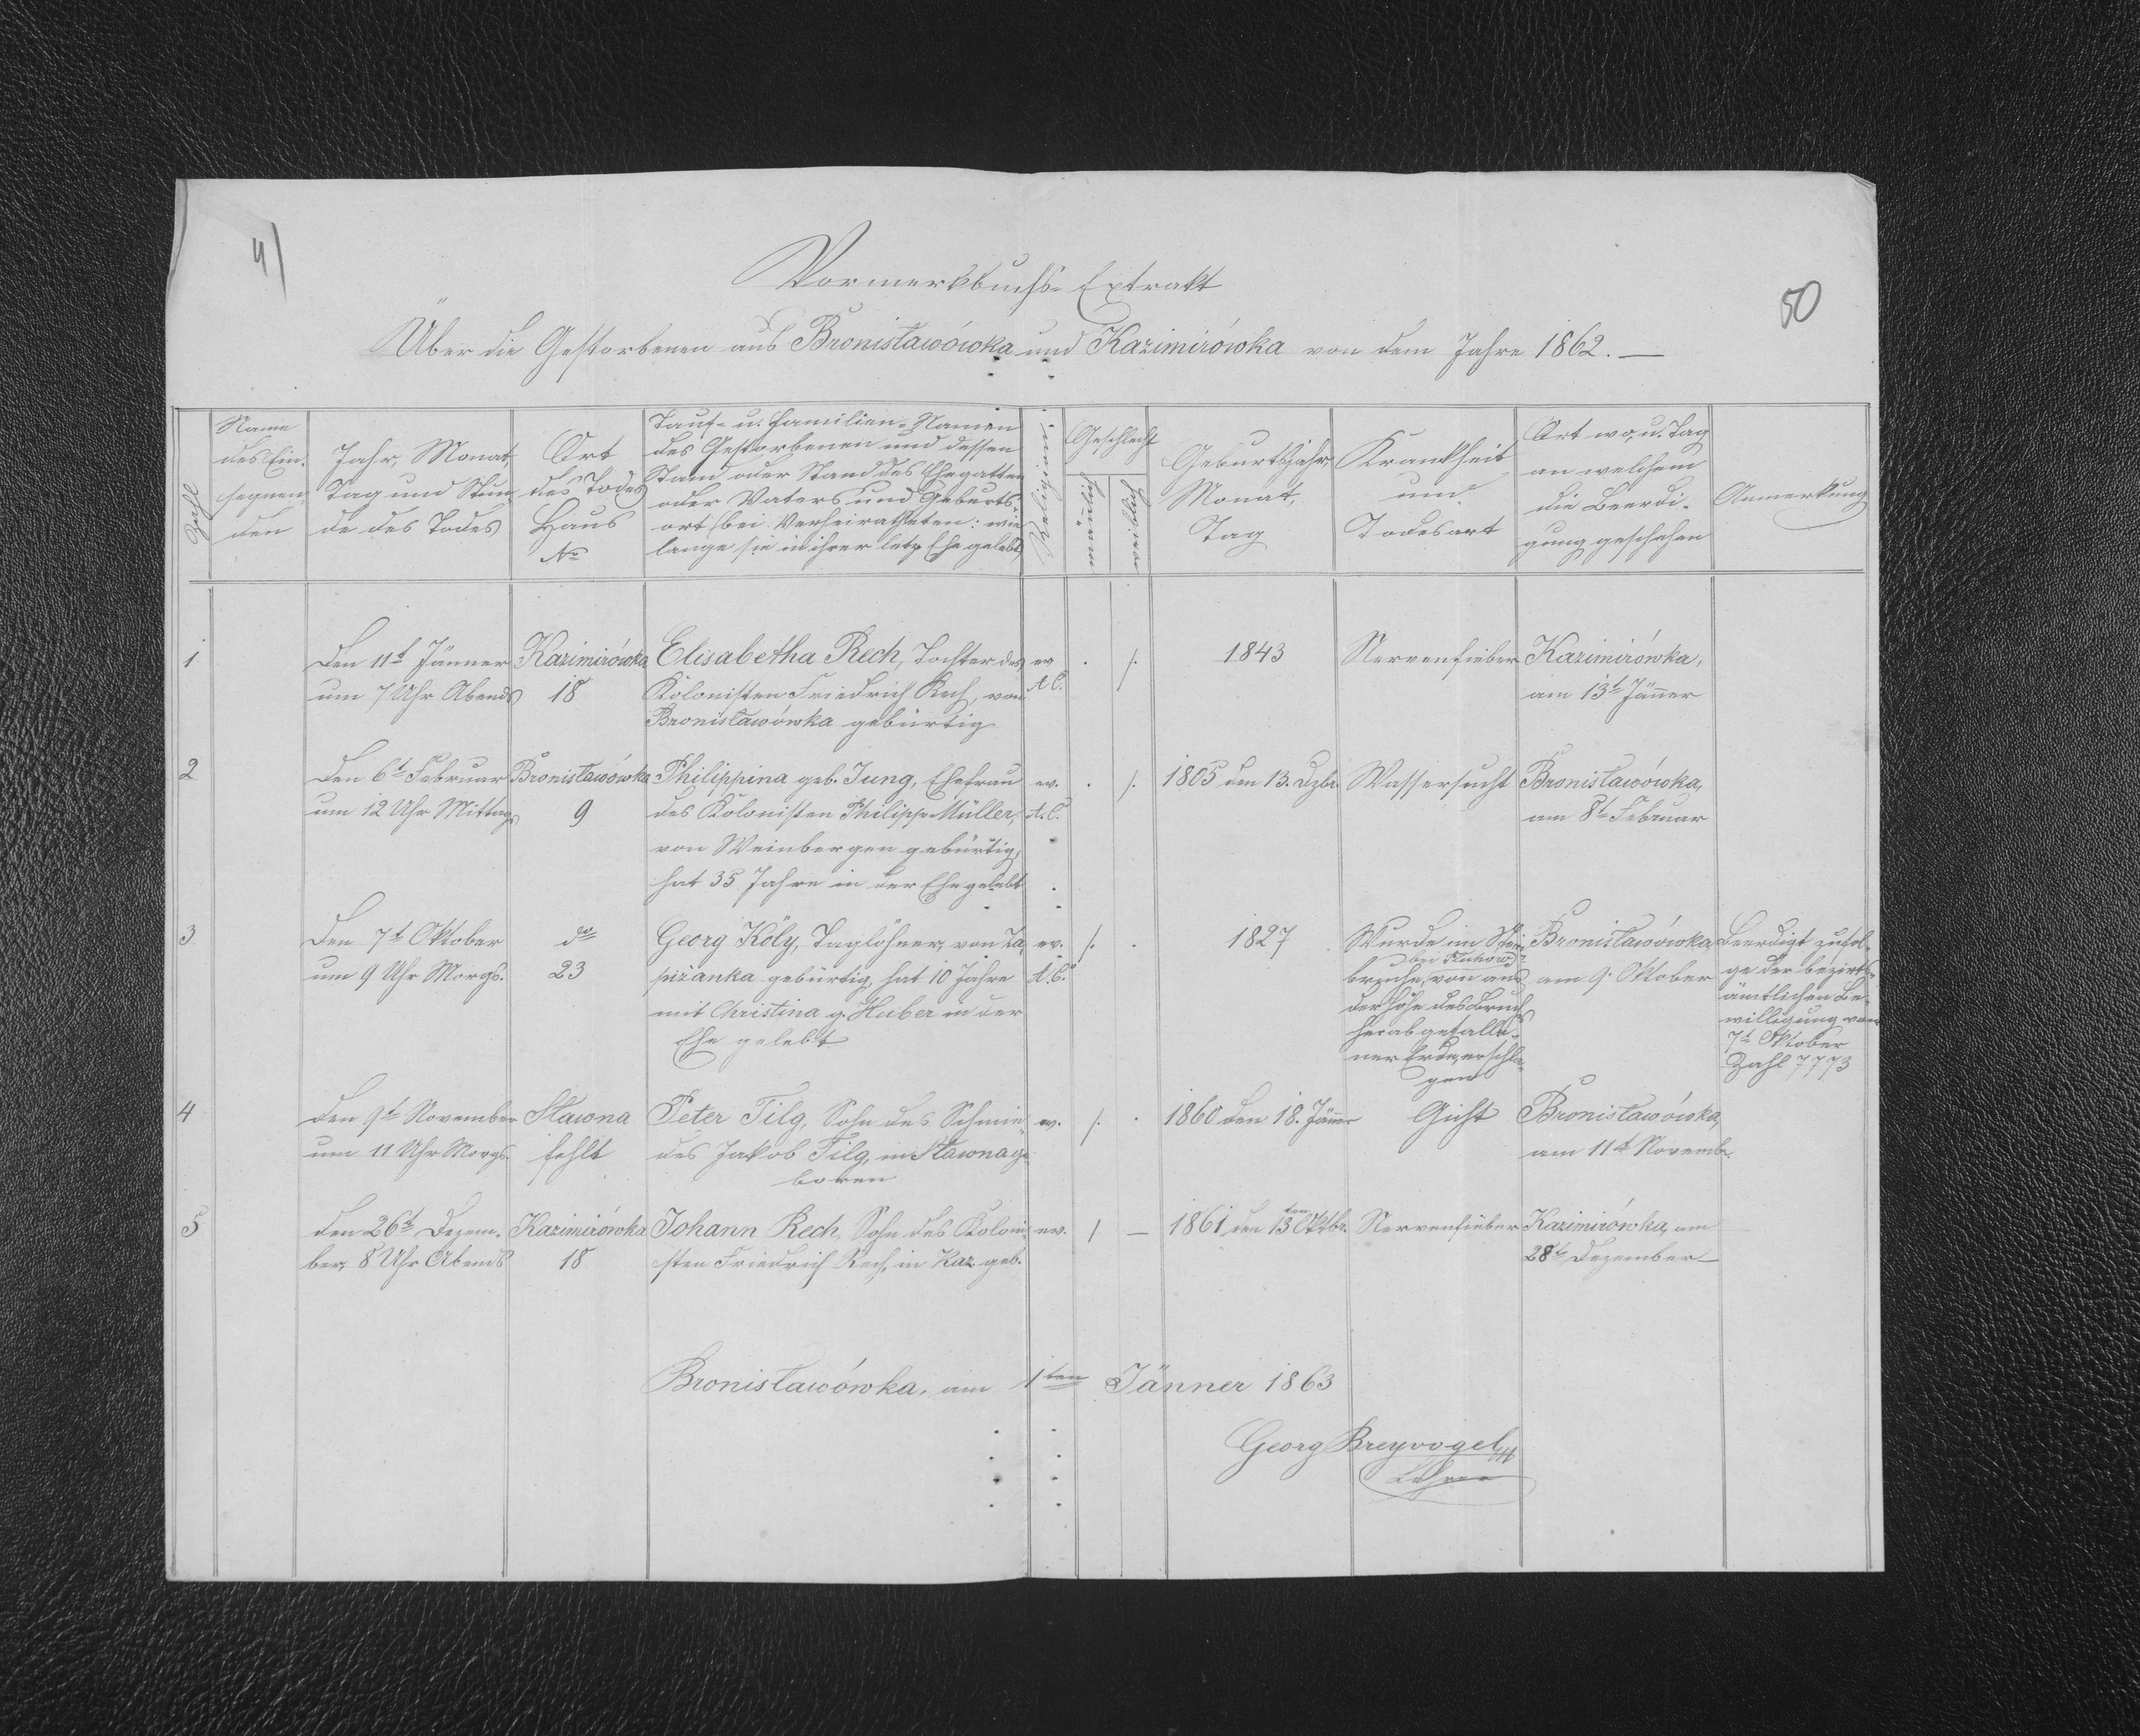 4)
50
Vormerkbuchs-Extrakt
Über die Gestorbenen aus Bronisławówka und Kazimirówka von dem Jahre 1862. —
Zahl
Name
des Ein-
segnen-
den
Jahr, Monat,
Tag und Stun-
de des Todes
Ort
des Todes
Haus
No
Tauf- u. Familien-Namen
des Gestorbenen und dessen
Stand oder Stand des Ehegatten
oder Vaters und Geburts-
ort (bei Verheiratheten: wie
lange sie in ihrer letz. Ehe gelebt)
Religion
Geschlecht
männlich
weiblich
Geburtsjahr,
Monat,
Tag
Krankheit
und
Todesart
Ort wo, u. Tag
an welchem
die Beerdi-
gung geschehen
Anmerkung
1
Den 11t Jänner
um 7 Uhr Abends
Kazimirówka
18
Elisabetha Rech, Tochter des
Kolonisten Friedrich Rech, von
Bronisławówka gebürtig
ev
A.C.
/.
1843
Nervenfieber
Kazimirówka,
am 13t Jänner
2
Den 6t Februar
um 12 Uhr Mittags
Bronisławówka
9
Philippina geb. Jung, Ehefrau
des Kolonisten Philipp Müller,
von Weinbergen gebürtig,
hat 35 Jahre in der Ehe gelebt
ev.
A.C.
/.
1805 den 13. Dzbr.
Wassersucht
Bronisławówka,
am 8t Februar
3
Den 7t Oktober
um 9 Uhr Morgs.
do
23
Georg Köly, Taglöhner, von Za-
piżanka gebürtig, hat 10 Jahre
mit Christina g. Huber in der
Ehe gelebt
ev.
A.C.
/.
1827
Wurde im Stein-
bruche, von aus
der Höhe des Bruchs
herabgefalle-
ner Erde, erschla-
gen
Bronisławówka
am 9. Oktober
Beerdigt zufol-
ge der bezirks-
ämtlichen Be-
willigung vom
7t Oktober
Zahl 7773
4
Den 9t November
um 11 Uhr Morgs.
Sławna
fehlt
Peter Tilg, Sohn des Schmie-
des Jakob Tilg, in Sławna ge-
boren
ev.
/.
1860 den 18. Jänner
Gicht
Bronisławówka,
am 11t Novemb.
5
Den 26t Dezem-
ber, 8 Uhr Abends
Kazimirówka
18
Johann Rech, Sohn des Koloni-
sten Friedrich Rech, in Kaz. geb.
ev.
/
—
1861 den 13ten Oktbr.
Nervenfieber
Kazimirówka, am
28t Dezember
Bronisławówka, am 1ten Jänner 1863
Georg Breyvogel
Lehrer